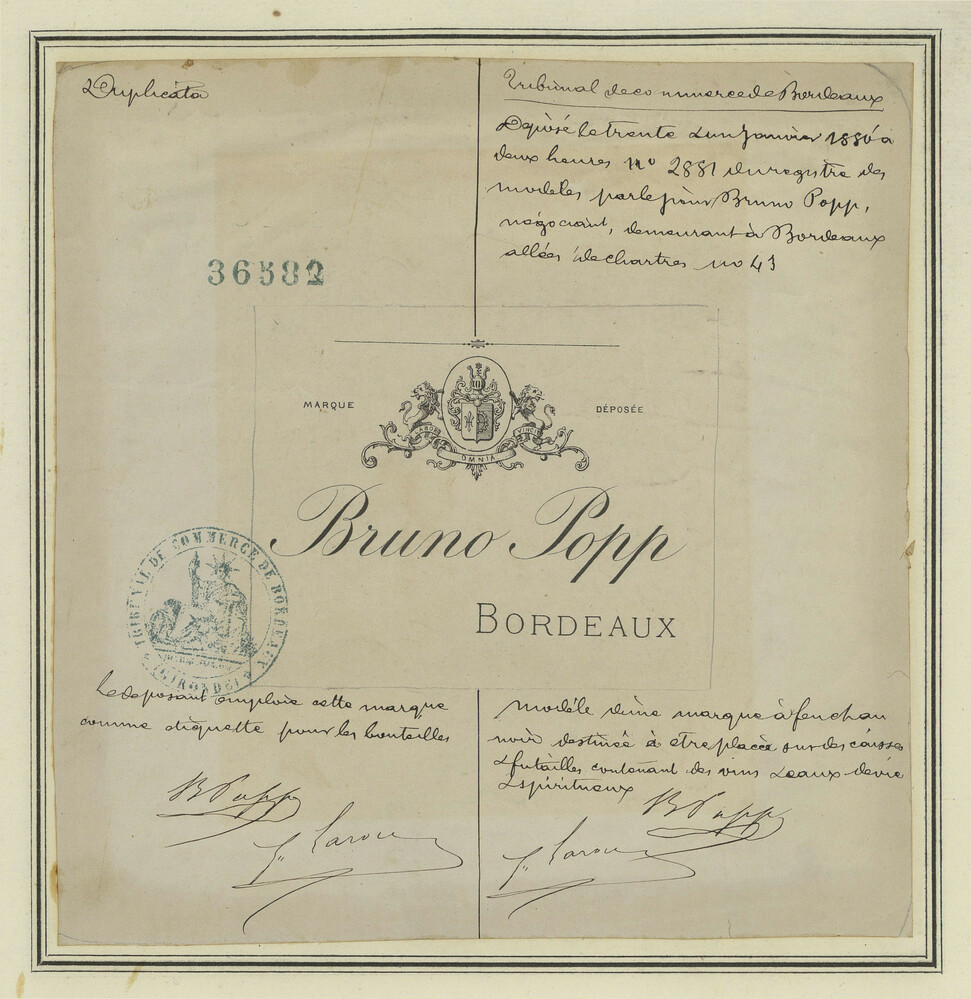 Duplicata
Tribunal de commerce de Bordeaux
Déposé le trente & un Janvier 1880 à
deux heures no 2881 du registre des
modèles par le sieur Bruno Popp,
négociant, demeurant à Bordeaux
allées de chartres no 43
36582
MARQUE DÉPOSÉE
LABOR OMNIA VINCIT
Bruno Popp
BORDEAUX
TRIBUNAL DE COMMERCE DE BORDEAUX
(GIRONDE)
Le déposant emploie cette marque
comme étiquette pour les bouteilles
B Popp
modèle d'une marque à feu en
noir destinée à être placée sur des caisses
& futailles contenant des vins & eaux de vie
& spiritueux
B Popp